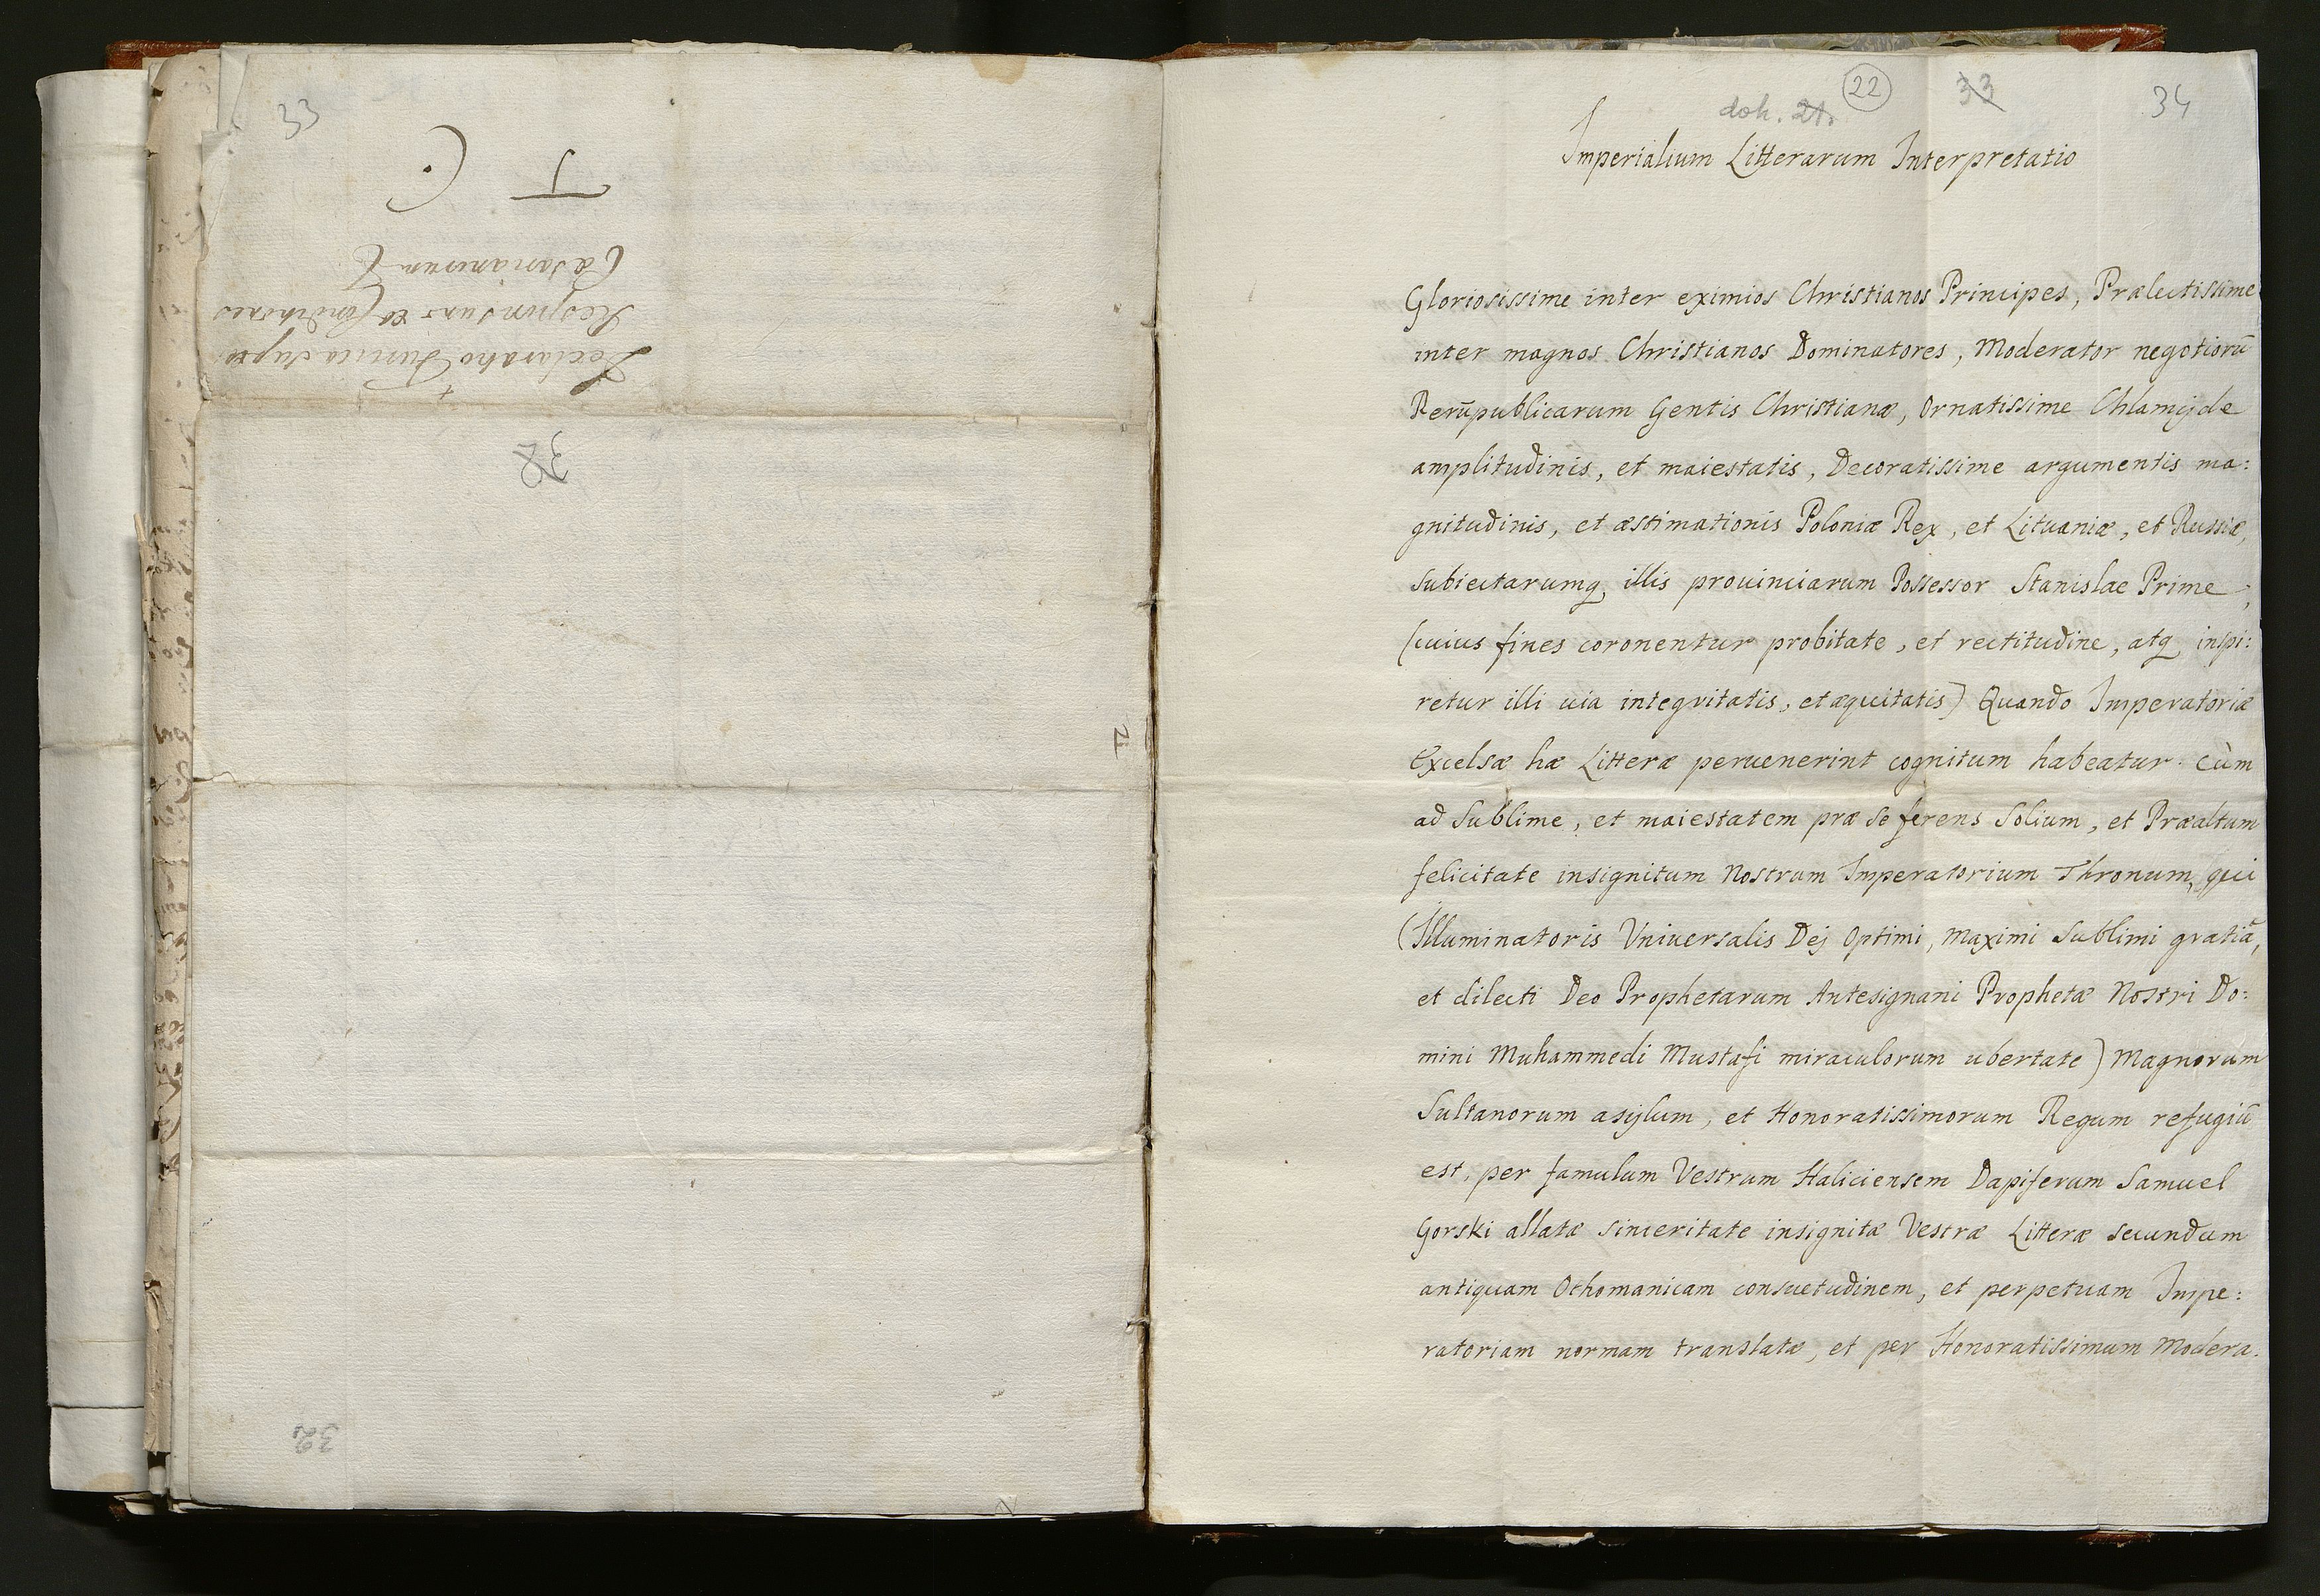 33
T (.
Declaratio Turcica supra
Responsum et Conditiones
Cæsarianorum
32
32
doh. 21. 22 33 34
Imperialium Litterarum Interpretatio
Gloriosissime inter eximios Christianos Principes, Prælectissime
inter magnos Christianos Dominatores, Moderator negotiorū
Rerūpublicarum Gentis Christianæ, Ornatissime Chlamyde
amplitudinis, et maiestatis, Decoratissime argumentis ma:
gnitudinis, et æstimationis Poloniæ Rex, et Lituaniæ, et Russiæ,
subiectarumq, illis prouinciarum Possessor Stanislae Prime,
(cuius fines coronentur probitate, et rectitudine, atq, inspi:
retur illi uia integritatis, et æquitatis) Quando Imperatoriæ
Excelsæ hæ Litteræ peruenerint cognitum habeatur. Cùm
ad Sublime, et maiestatem præ se ferens Solium, et Præaltum
felicitate insignitum Nostrum Imperatorium Thronum, qui
(Illuminatoris Vniuersalis Dej Optimi, Maximi Sublimi gratiâ,
et dilecti Deo Prophetarum Antesignani Prophetæ Nostri Do:
mini Muhammedi Mustafi miraculorum ubertate) Magnorum
Sultanorum asylum, et Honoratissimorum Regum refugiū
est, per famulum Vestrum Haliciensem Dapiferum Samuel
Gorski allatæ sinceritate insignitæ Vestræ Litteræ secundum
antiquam Othomanicam consuetudinem, et perpetuam Impe:
ratoriam normam translatæ, et per Honoratissimum Modera.